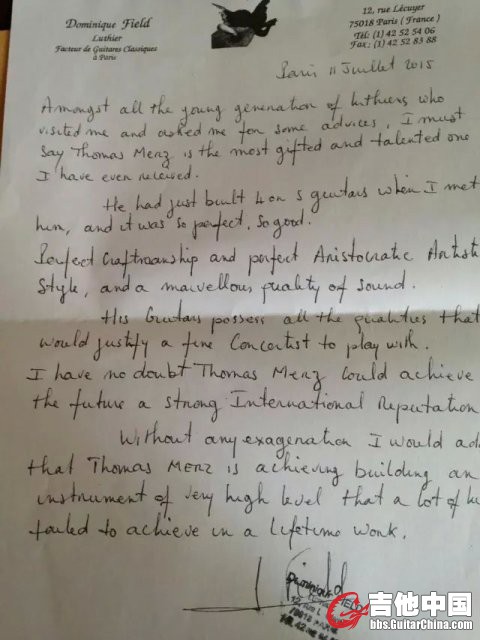 Dominique Field
Luthier
Facteur de Guitares Classiques
à Paris
12, rue Lécuyer
75018 Paris ( France )
Tél: (1) 42 52 54 06
Fax: (1) 42 52 83 88
Paris 11 Juillet 2015
Amongst all the young generation of luthiers who
visited me and asked me for some advices, I must
say Thomas Merz is the most gifted and talented one
I have ever received.
He had just built 4 or 5 guitars when I met
him, and it was so perfect, so good.
Perfect Craftmanship and perfect Aristocratic Artisti
Style, and a marvellous quality of sound.
His Guitars possess all the qualities that
would justify a fine Concertist to play with.
I have no doubt Thomas Merz could achieve
the future a strong International Reputation
Without any exageration I would ad
that Thomas Merz is achieving building an
instrument of very high level that a lot of lu
failed to achieve in a lifetime work.
Dominique FIELD
吉他中国
bbs.GuitarChina.com